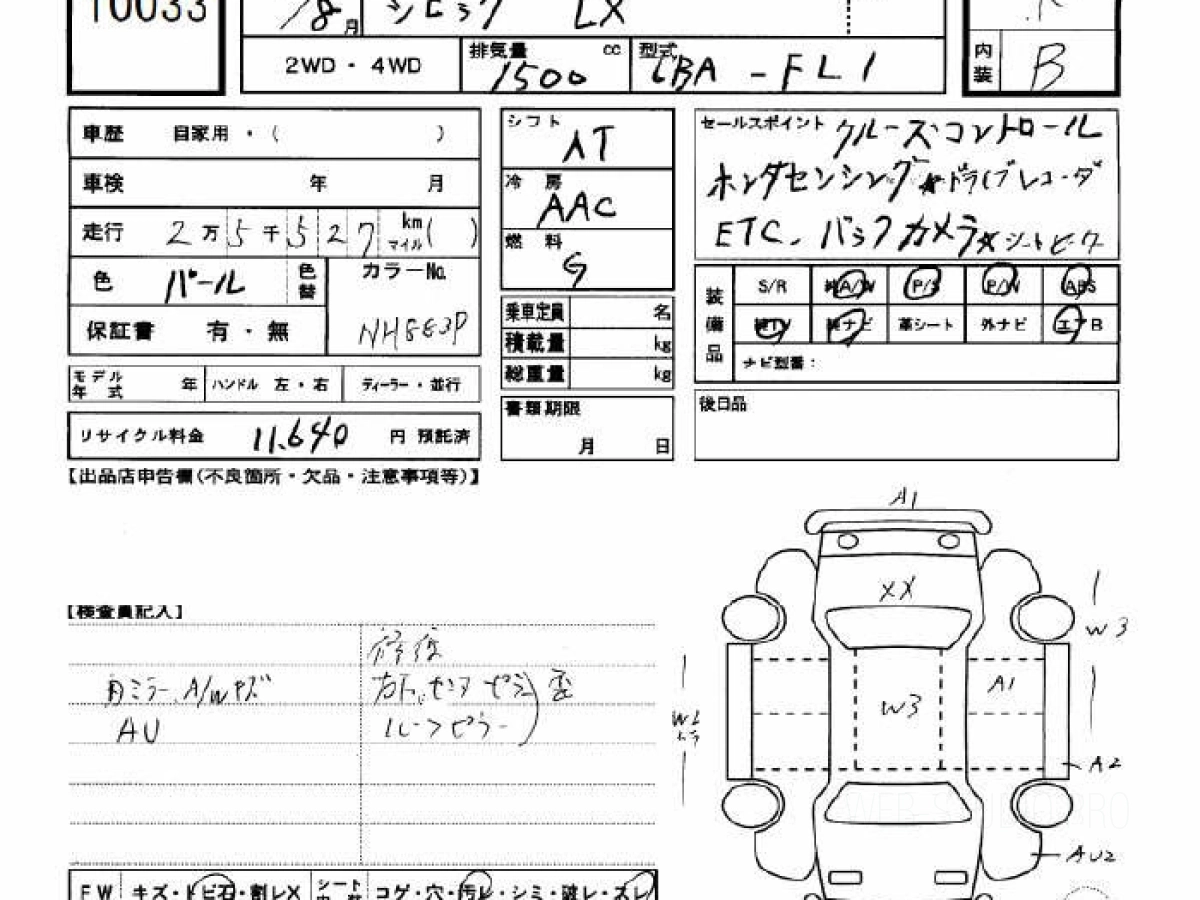 10033
/8月 シビック LX
2WD・4WD
排気量 cc 1500
型式 CBA - FL1
内装 B
車歴 自家用・( )
車検 年 月
走行 2万5千527 km マイル( )
色 パール 色替
カラーNo. NH883P
保証書 有・無
モデル年式 年 ハンドル 左・右 ディーラー・並行
リサイクル料金 11,640 円 預託済
シフト AT
冷房 AAC
燃料 G
乗車定員 名
積載量 kg
総重量 kg
書類期限
月 日
セールスポイント クルーズコントロール
ホンダセンシング ☆ドライブレコーダ
ETC、バックカメラ☆シートヒータ
装備品
S/R 純A/W P/S P/W ABS
純TV 純ナビ 革シート 外ナビ エアB
ナビ型番:
後日品
【出品店申告欄(不良箇所・欠品・注意事項等)】
【検査員記入】
修復
内ミラー、A/Wキズ
AU
ルーフピラー
A1
XX
W3
W3
A1
W2
A2
AU2
FW キズ・トビ石・割レX シート コゲ・穴・汚レ・シミ・破レ・スレ